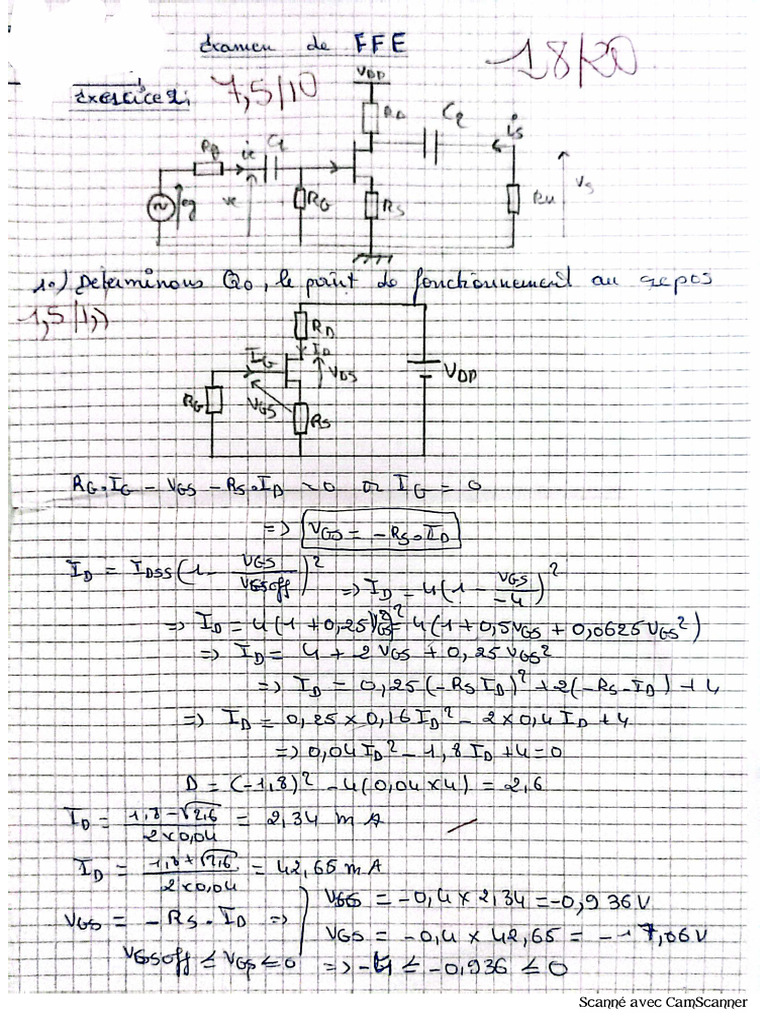 Examen de EFE
18/20
Exercice 2:
7,5/10
VDD
RD
C2
is
Rg
ie
C1
eg
ve
RG
RS
Ru
vs
1o) Determinons Q0, le point de fonctionnement au repos
RD
ID
IG
VDS
VDD
RG
VGS
RS
RG.IG - VGS - RS.ID = 0 or IG = 0
=> VGS = -RS.ID
ID = IDSS(1 - VGS/VGSoff)² => ID = 4(1 - VGS/-4)²
=> ID = 4(1 + 0,25VGS)² = 4(1 + 0,5VGS + 0,0625VGS²)
=> ID = 4 + 2VGS + 0,25VGS²
=> ID = 0,25(-RS ID)² + 2(-RS.ID) + 4
=> ID = 0,25 × 0,16ID² - 2 × 0,4ID + 4
=> 0,04ID² - 1,8ID + 4 = 0
D = (-1,8)² - 4(0,04×4) = 2,6
ID = 1,8 - √2,6 / 2×0,04 = 2,34 mA
ID = 1,8 + √2,6 / 2×0,04 = 42,65 mA
VGS = -RS.ID =>
VGS = -0,4 × 2,34 = -0,936V
VGS = -0,4 × 42,65 = -17,06V
VGSoff ≤ VGS ≤ 0 => -4 ≤ -0,936 ≤ 0
Scanné avec CamScanner